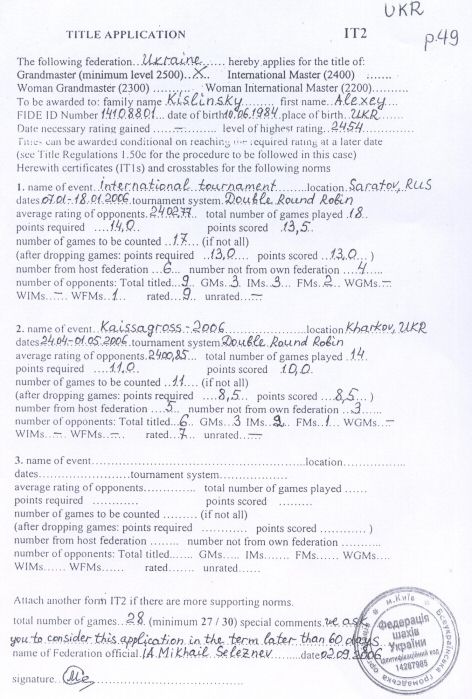 UKR
TITLE APPLICATION IT2
p.49
The following federation..Ukraine..... hereby applies for the title of:
Grandmaster (minimum level 2500)..X.. International Master (2400) .......
Woman Grandmaster (2300) ......... Woman International Master (2200) .......
To be awarded to: family name Kislinsky........ first name..Alexey......
FIDE ID Number 14108801.. date of birth 10.06.1984. place of birth..UKR...
Date necessary rating gained ....–..... level of highest rating..2454......
Titles can be awarded conditional on reaching the required rating at a later date
(see Title Regulations 1.50c for the procedure to be followed in this case)
Herewith certificates (IT1s) and crosstables for the following norms
1. name of event.International tournament......location.Saratov, RUS
dates 07.01-18.01.2006.tournament system.Double Round Robin
average rating of opponents.2402,77.. total number of games played.18..
points required ....14,0.. points scored ...13,5..
number of games to be counted ..17.. (if not all)
(after dropping games: points required ..13,0... points scored ...13,0.. )
number from host federation ...6... number not from own federation ....4....
number of opponents: Total titled..9.. GMs..3 IMs..3.. FMs..2.. WGMs–
WIMs..–.. WFMs..1.. rated..9.. unrated..–..
2. name of event..Kaissagross-2006................location Kharkov, UKR
dates 24.04-01.05.2006.tournament system Double Round Robin
average rating of opponents.2400,85.. total number of games played.14.
points required ....11,0... points scored ..10,0..
number of games to be counted ..11.... (if not all)
(after dropping games: points required ....8,5... points scored ......8,5... )
number from host federation ....5... number not from own federation ...3....
number of opponents: Total titled...6.. GMs...3 IMs..2.. FMs..1.. WGMs..–
WIMs..–.. WFMs ..–.. rated..7... unrated..–..
3. name of event.............................................location...................
dates.......................tournament system.......................
average rating of opponents............. total number of games played ......
points required ........... points scored ...........
number of games to be counted ......... (if not all)
(after dropping games: points required ........... points scored ............... )
number from host federation ........ number not from own federation ..........
number of opponents: Total titled...... GMs..... IMs....... FMs...... WGMs....
WIMs...... WFMs ...... rated....... unrated......
Attach another form IT2 if there are more supporting norms.
total number of games..28. (minimum 27 / 30) special comments.we ask
you to consider this application in the term later than 60 days
name of Federation official.IA Mikhail Seleznev..date 02.09.2006
signature..
м.Київ
Федерація
шахів
України
ідентифікаційний код
14287985